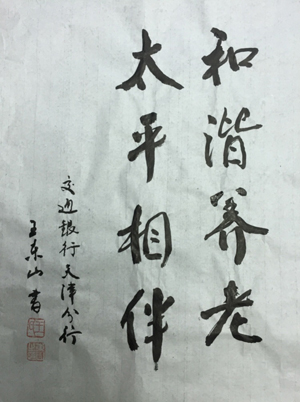 和谐养老
太平相伴
交通银行天津分行
王东山书